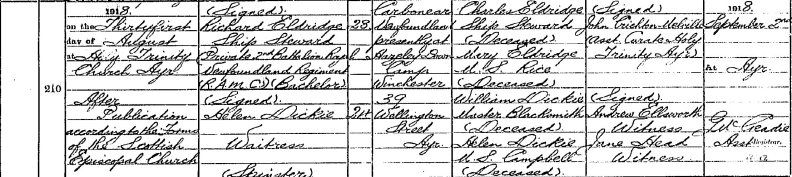 1918.
on the Thirtyfirst
day of August
at Holy Trinity
Church Ayr
210
After
Publication
according to the Forms
of the Scottish
Episcopal Church
(Signed)
Richard Eldridge
Ship Steward
(Private 2nd Battalion Royal
Newfoundland Regiment
(R.A.M.C.) (Bachelor)
(Signed)
Helen Dickie
Waitress
(Spinster)
23
24
Carbonear
Newfoundland
presently at
Hazeley Down
Camp
Winchester
39
Wellington
Street
Ayr
Charles Eldridge
Ship Steward
(Deceased)
Mary Eldridge
M.S. Rice
(Deceased)
William Dickie
Master Blacksmith
(Deceased)
Helen Dickie
M.S. Campbell
(Deceased)
(Signed)
John Crichton Melville
Asst. Curate Holy
Trinity Ayr
(Signed)
Andrew Ellsworth
Witness
Jane Head
Witness
1918.
September 2nd
At Ayr
McCreadie
Asst Registrar.